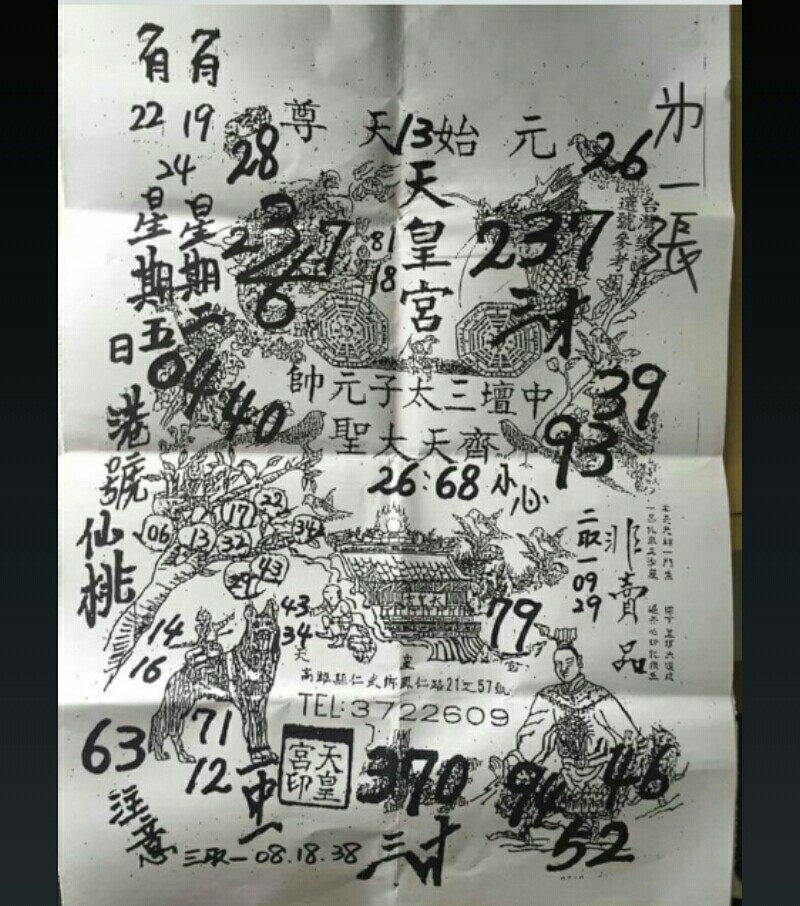 有 有
22 19
24
星期二
星期五
日
港號
仙桃
28
元始天尊
13
天皇宮
26
第一張
237
三才
81
18
04
40
中壇三太子元帥
齊天大聖
39
93
26:68 小心
二取一 09
29
非賣品
06
13
17
22
32
34
43
43
34
14
16
79
高雄縣仁武鄉鳳仁路21之57號
TEL:3722609
63
71
12
一中一
天皇宮印
370
三才
94
46
52
注意
三取一 08.18.38